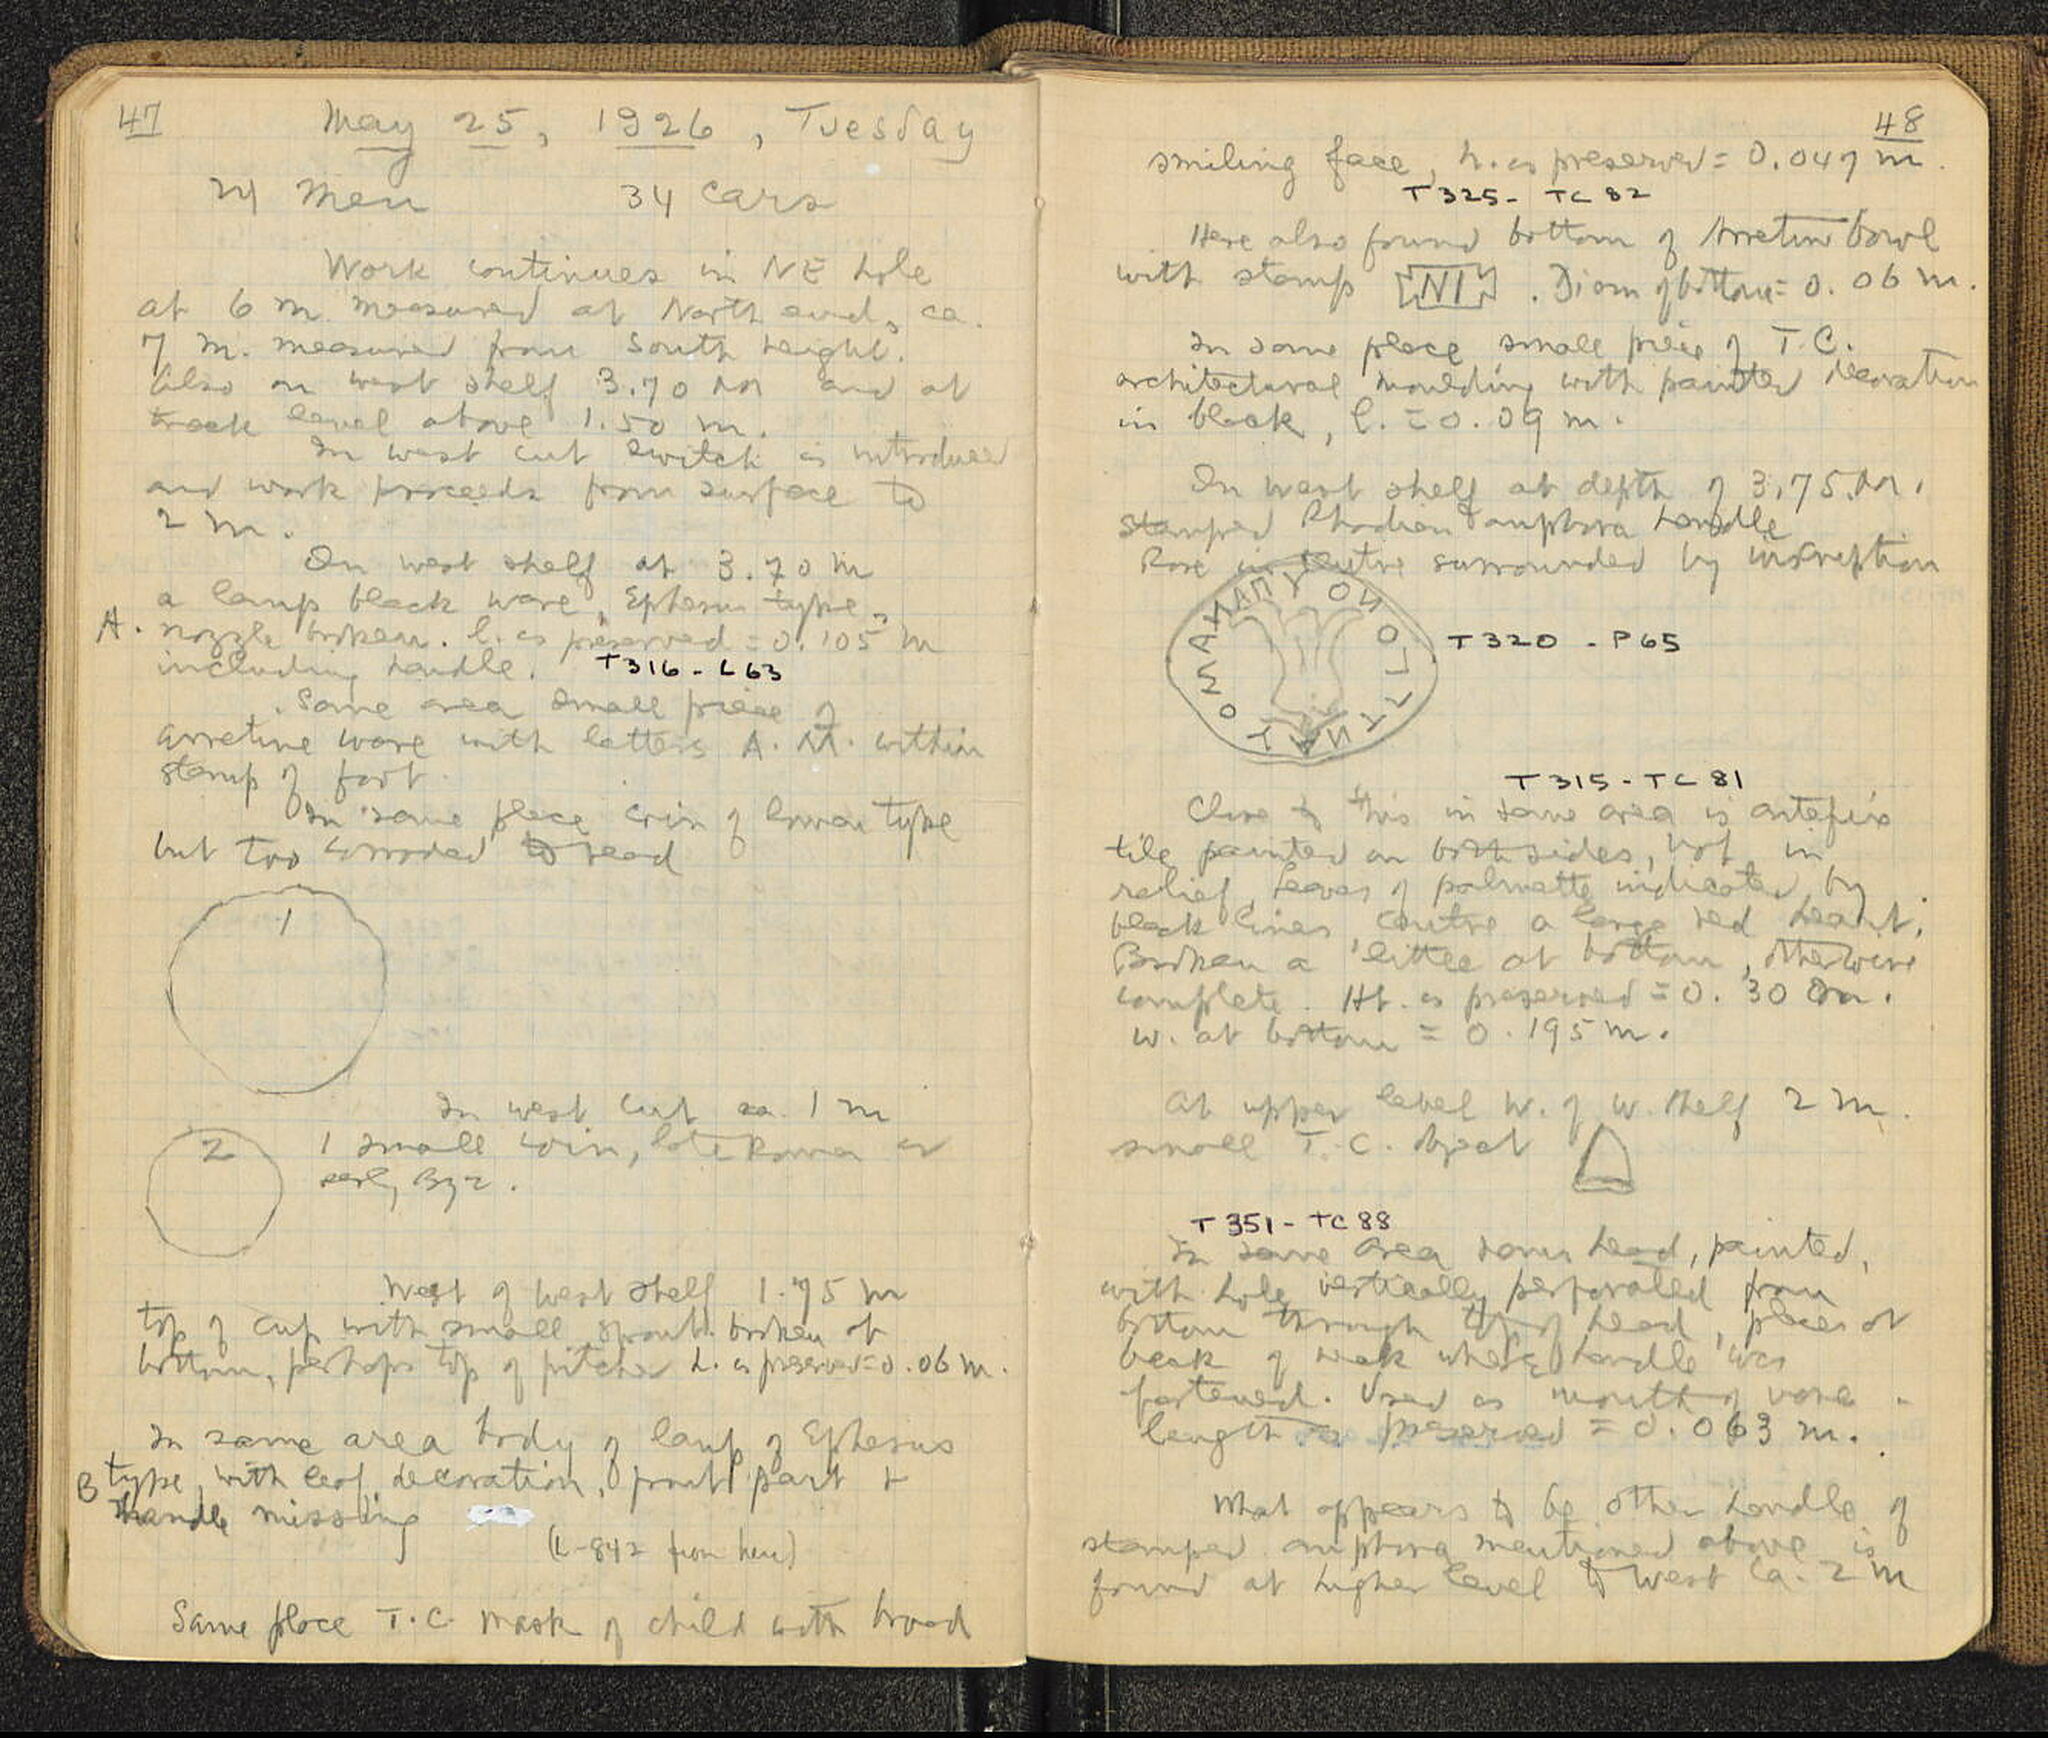 47
May 25, 1926, Tuesday
24 Men 34 cars
Work continues in NE hole
at 6 m measured at North end, ca.
7 m. measured from South height.
Also on west shelf 3.70 m and at
track level above 1.50 m.
In west cut switch is introduced
and work proceeds from surface to
2 m.
On west shelf at 3.70 m
a lamp black ware, Ephesus type,
A. nozzle broken. l. as preserved = 0.105 m
including handle. T316 - L63
Same area small piece of
arretine ware with letters A. M. within
stamp of foot.
In same place coin of Roman type
but too corroded to read
1
In west cut ca. 1 m
2
1 small coin, late Roman or
early Byz.
West of west shelf 1.75 m
top of cup with small spout broken at
bottom, perhaps top of pitcher h. as preserved = 0.06 m.
In same area body of lamp of Ephesus
B type, with leaf decoration, front part +
handle missing
(L-842 from here)
Same place T.C. mask of child with broad
48
smiling face, h. as preserved = 0.047 m.
T325 - TC 82
Here also found bottom of Arretine bowl
with stamp NI . Diam of bottom = 0.06 m.
In same place small piece of T.C.
architectural moulding with painted decoration
in black, l. = 0.09 m.
On west shelf at depth of 3.75 m.
stamped Rhodian amphora handle
Rose in centre surrounded by inscription
T320 - P65
T315 - TC 81
Close to this in same area is antefix
tile painted on both sides, not in
relief, leaves of palmette indicated by
black lines centre a large red heart.
Broken a little at bottom, otherwise
complete. Ht. as preserved = 0.30 m.
w. at bottom = 0.195 m.
At upper level W. of W. shelf 2 m.
small T.C. object
T351 - TC 88
In same area head, painted,
with hole vertically perforated from
bottom through top of head, places at
back of neck where handle was
fastened. Used as mouth of vase.
length as preserved = 0.063 m.
What appears to be other handle of
stamped amphora mentioned above is
found at higher level to west ca. 2 m